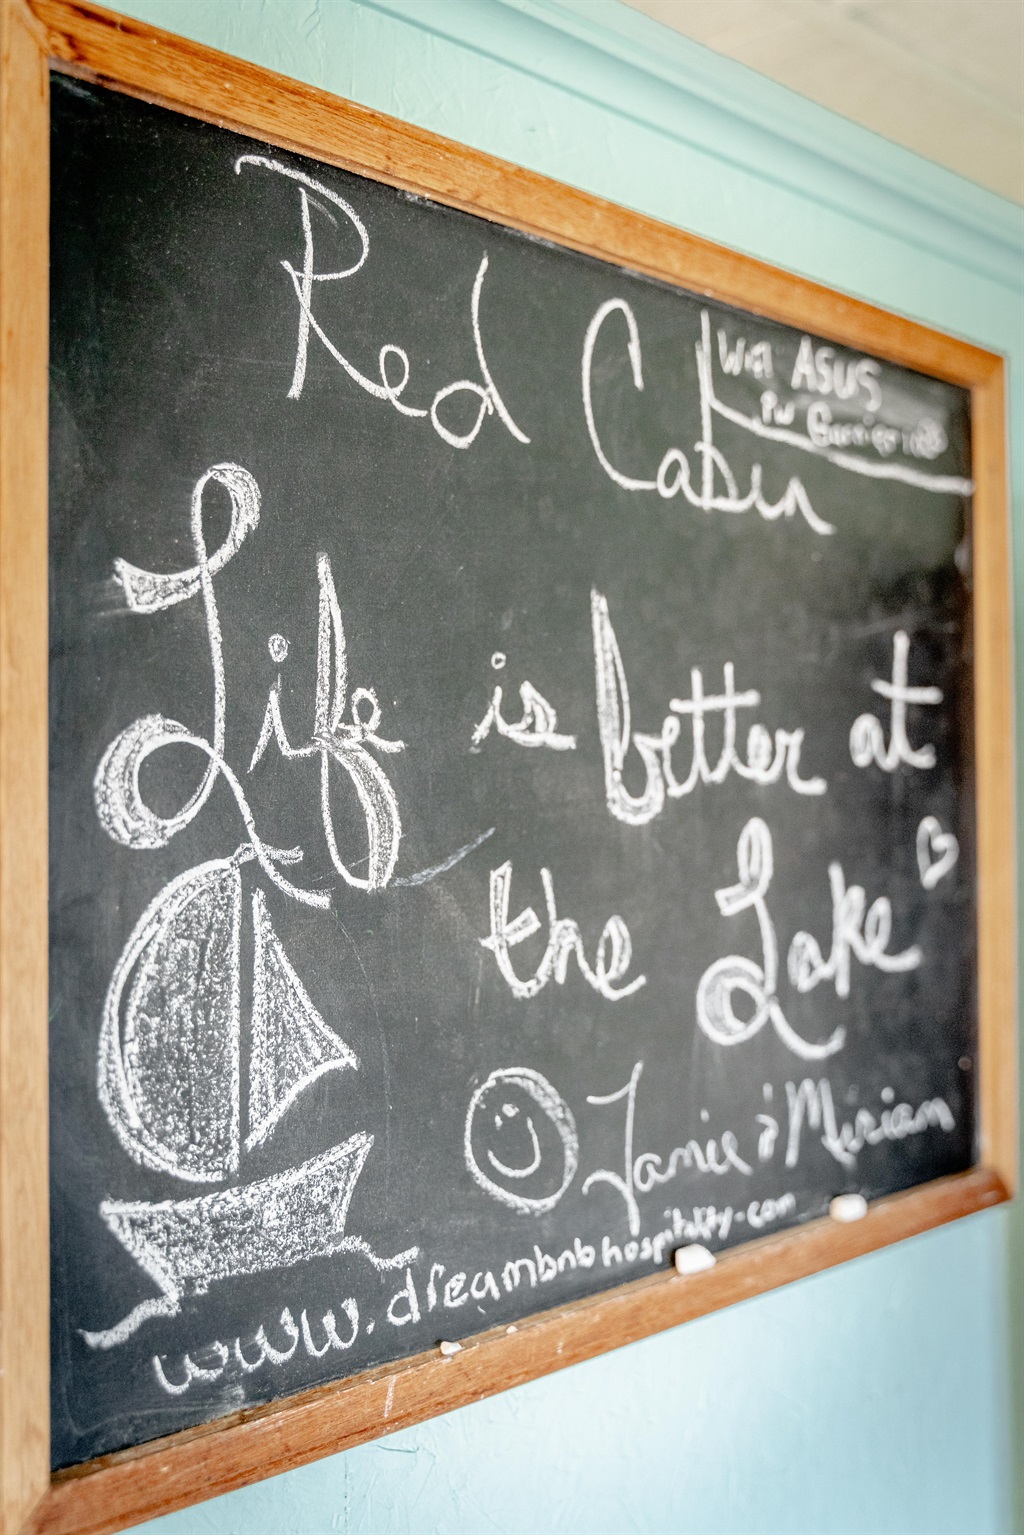 Red Cabin
Wifi ASUS
PW
Life is better at
the Lake
Jamie & Miriam
www.dreambnbhospitality.com